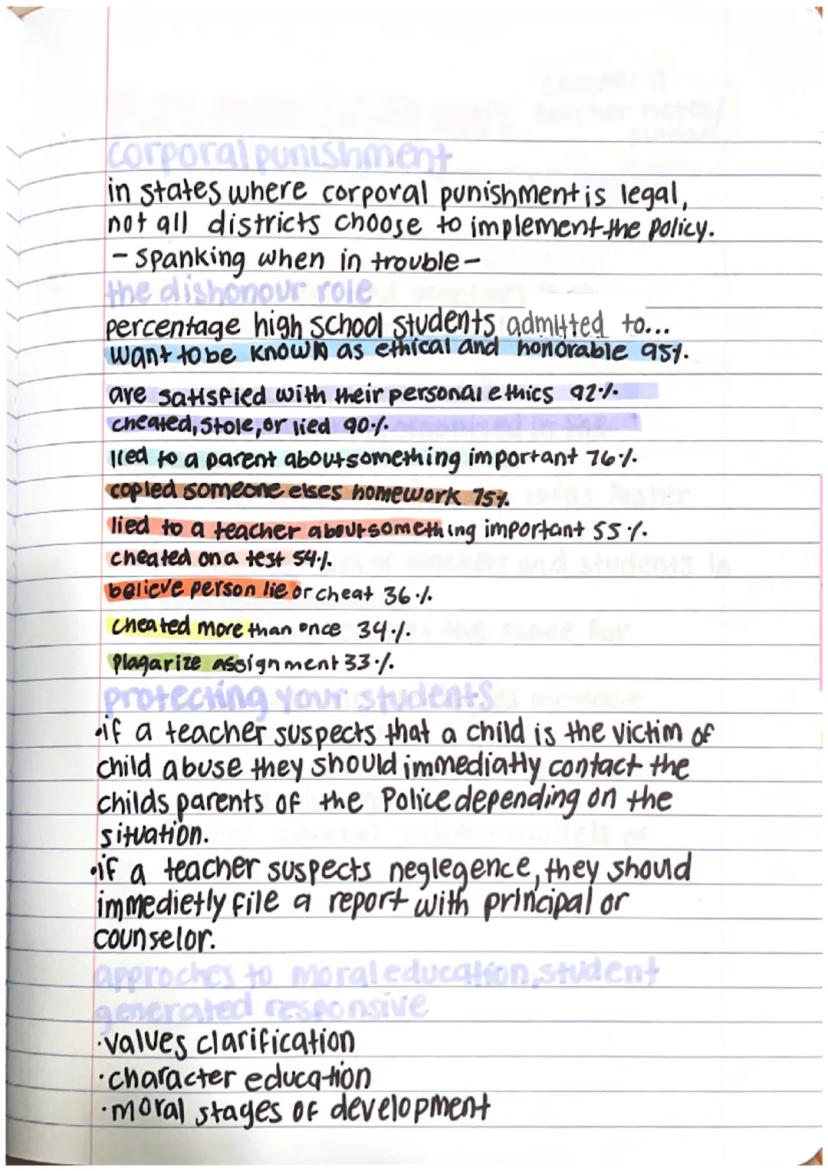 corporal punishment
in states where corporal punishment is legal,
not all districts choose to implement the policy.
- spanking when in trouble -
the dishonour role
percentage high school students admitted to...
want to be known as ethical and honorable 95%.
are satisfied with their personal ethics 92%.
cheated, stole, or lied 90%.
lied to a parent about something important 76%.
copied someone elses homework 75%.
lied to a teacher about something important 55%.
cheated on a test 54%.
believe person lie or cheat 36%.
cheated more than once 34%.
plagarize assignment 33%.
protecting your students
•if a teacher suspects that a child is the victim of
child abuse they should immediatly contact the
childs parents of the Police depending on the
situation.
•if a teacher suspects neglegence, they should
immedietly file a report with principal or
counselor.
approches to moral education, student
generated responsive
•values clarification
•character education
•moral stages of development